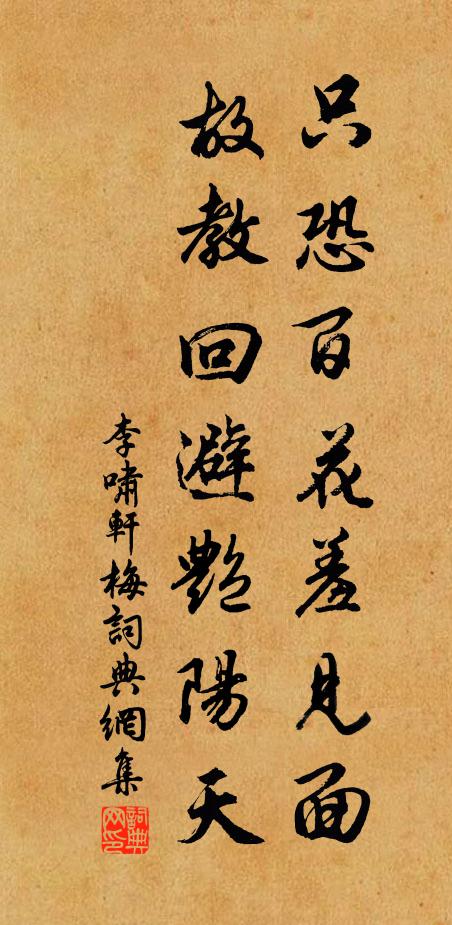 只恐百花羞見面
故教回避艷陽天
李嘯軒梅詞典網集
詞典網印